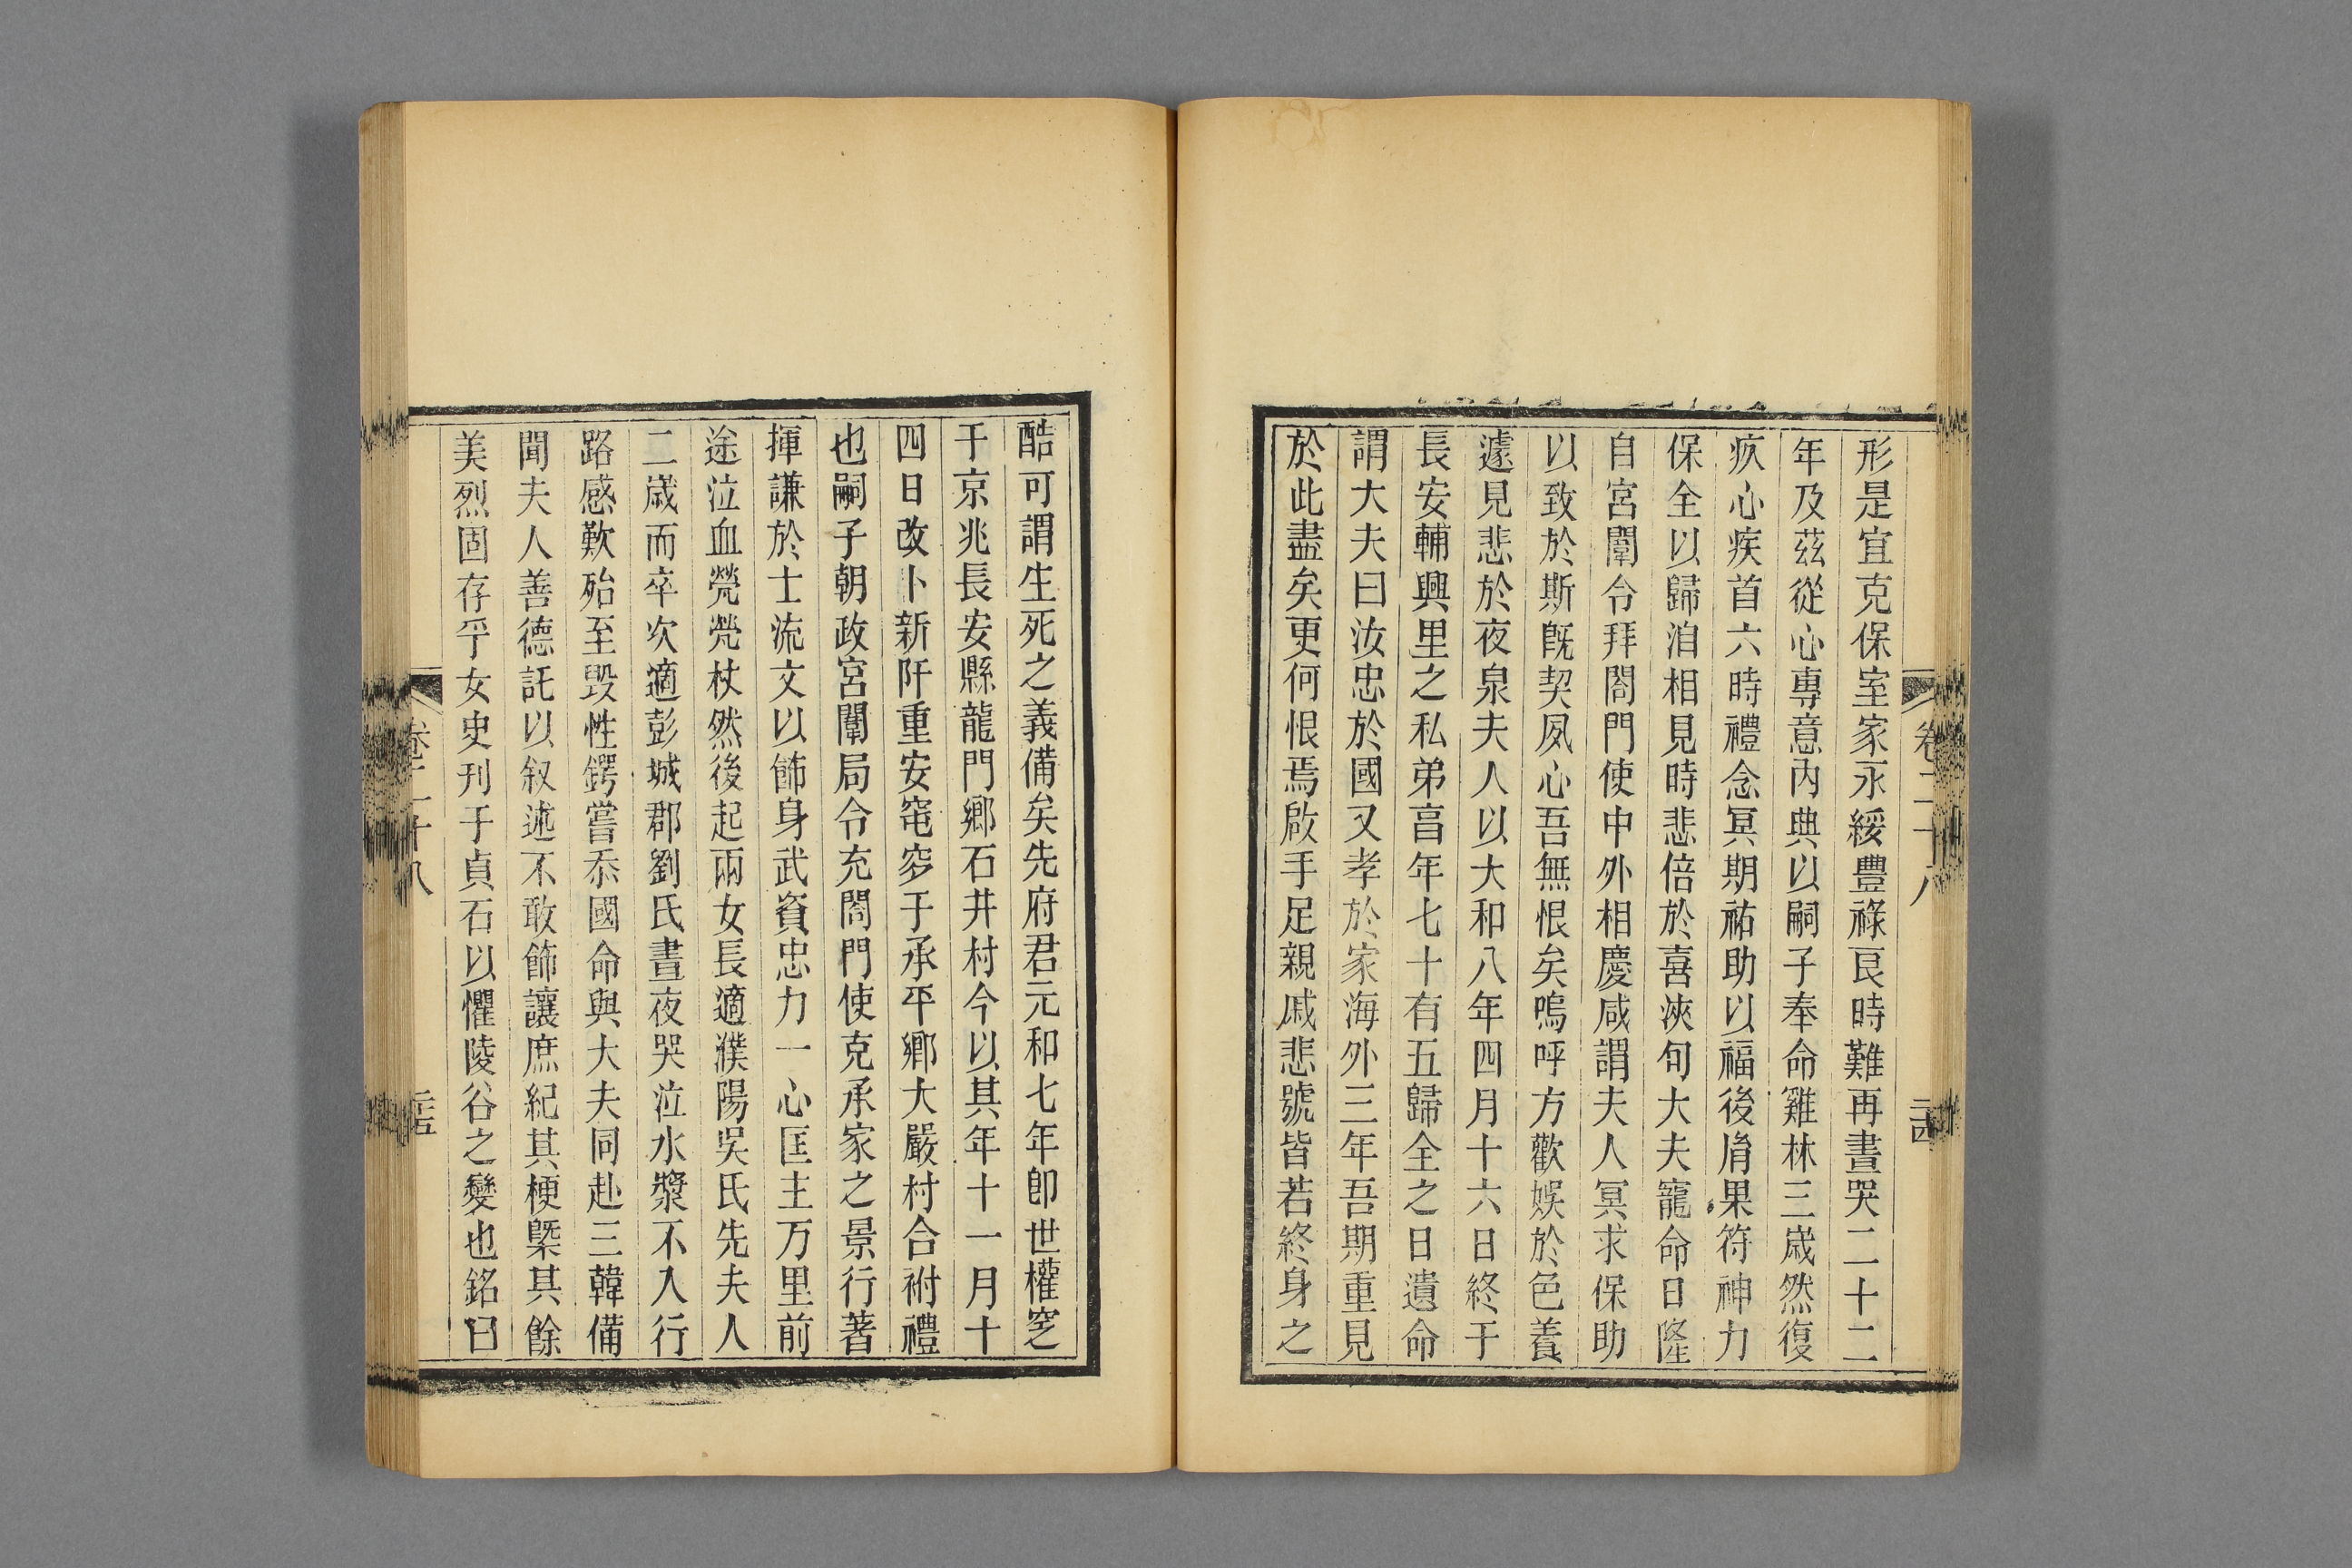 形是宜克保室家永綏豊祿良時難再晝哭二十二
年及茲從心專意內典以嗣子奉命雞林三歲然復
疚心疾首六時禮念冥期祐助以福後胤果符神力
保全以歸洎相見時悲倍於喜浹旬大夫寵命日隆
自宮闈令拜閤門使中外相慶咸謂夫人冥求保助
以致於斯旣契夙心吾無恨矣嗚呼方歡娛於色養
遽見悲於夜泉夫人以大和八年四月十六日終于
長安輔興里之私弟亯年七十有五歸全之日遺命
謂大夫曰汝忠於國又孝於家海外三年吾期重見
於此盡矣更何恨焉啟手足親戚悲號皆若終身之
卷二十八
二十四
酷可謂生死之義備矣先府君元和七年卽世權窆
于京兆長安縣龍門鄉石井村今以其年十一月十
四日改卜新阡重安窀穸于承平鄉大嚴村合祔禮
也嗣子朝政宮闈局令充閤門使克承家之景行著
揮謙於士流文以飾身武資忠力一心匡主万里前
途泣血煢煢杖然後起兩女長適濮陽吳氏先夫人
二歲而卒次適彭城郡劉氏晝夜哭泣水漿不入行
路感歎殆至毀性鍔嘗忝國命與大夫同赴三韓備
聞夫人善德託以叙述不敢飾讓庶紀其梗槩其餘
美烈固存乎女史刊于貞石以懼陵谷之變也銘曰
卷二十八
二十五